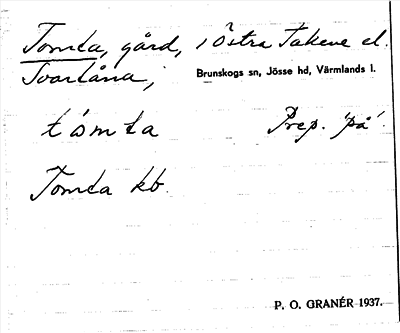 Tomta, gård, i Östra Takene el.
Svartåna;
Brunskogs sn, Jösse hd, Värmlands l.
tòmta Prep. 'på'.
Tomta kb.
P. O. GRANÉR 1937.